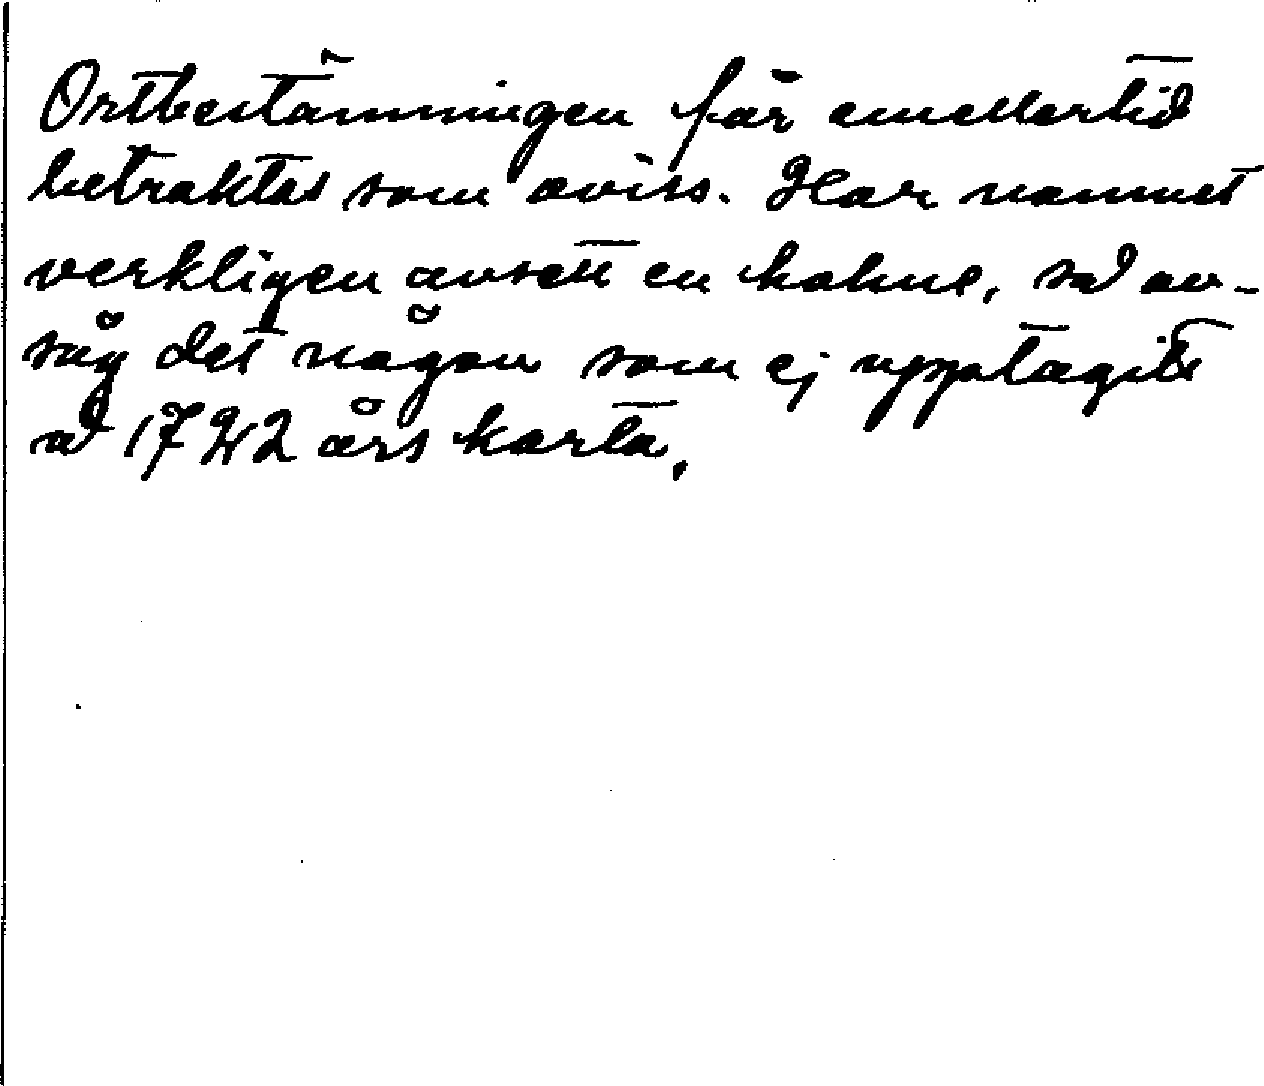 Ortbestämningen får emellertid
betraktas som oviss. Har namnet
verkligen avsett en kohne, så av-
såg det någon som ej upptagits
å 1742 års karta.